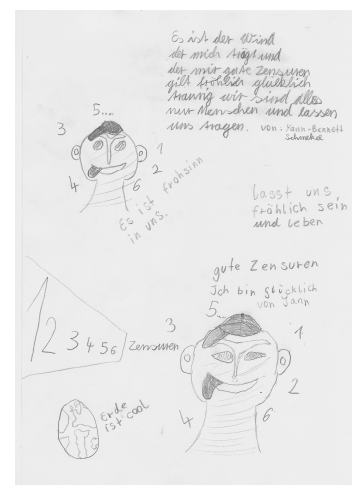 Es ist der Wind
der mich trägt und
der mir gute Zensuren
gibt fröhlich glücklich
traurig wir sind alles
nur Menschen und lassen
uns tragen. von: Yann-Bennett
5...
3
1
2
4
6
Es ist frohsinn
in uns.
lasst uns
fröhlich sein
und leben
gute Zensuren
Ich bin glücklich
von Yann
5...
3
1
2
4
6
1 2 3 4 5 6 Zensuren
Erde
ist cool